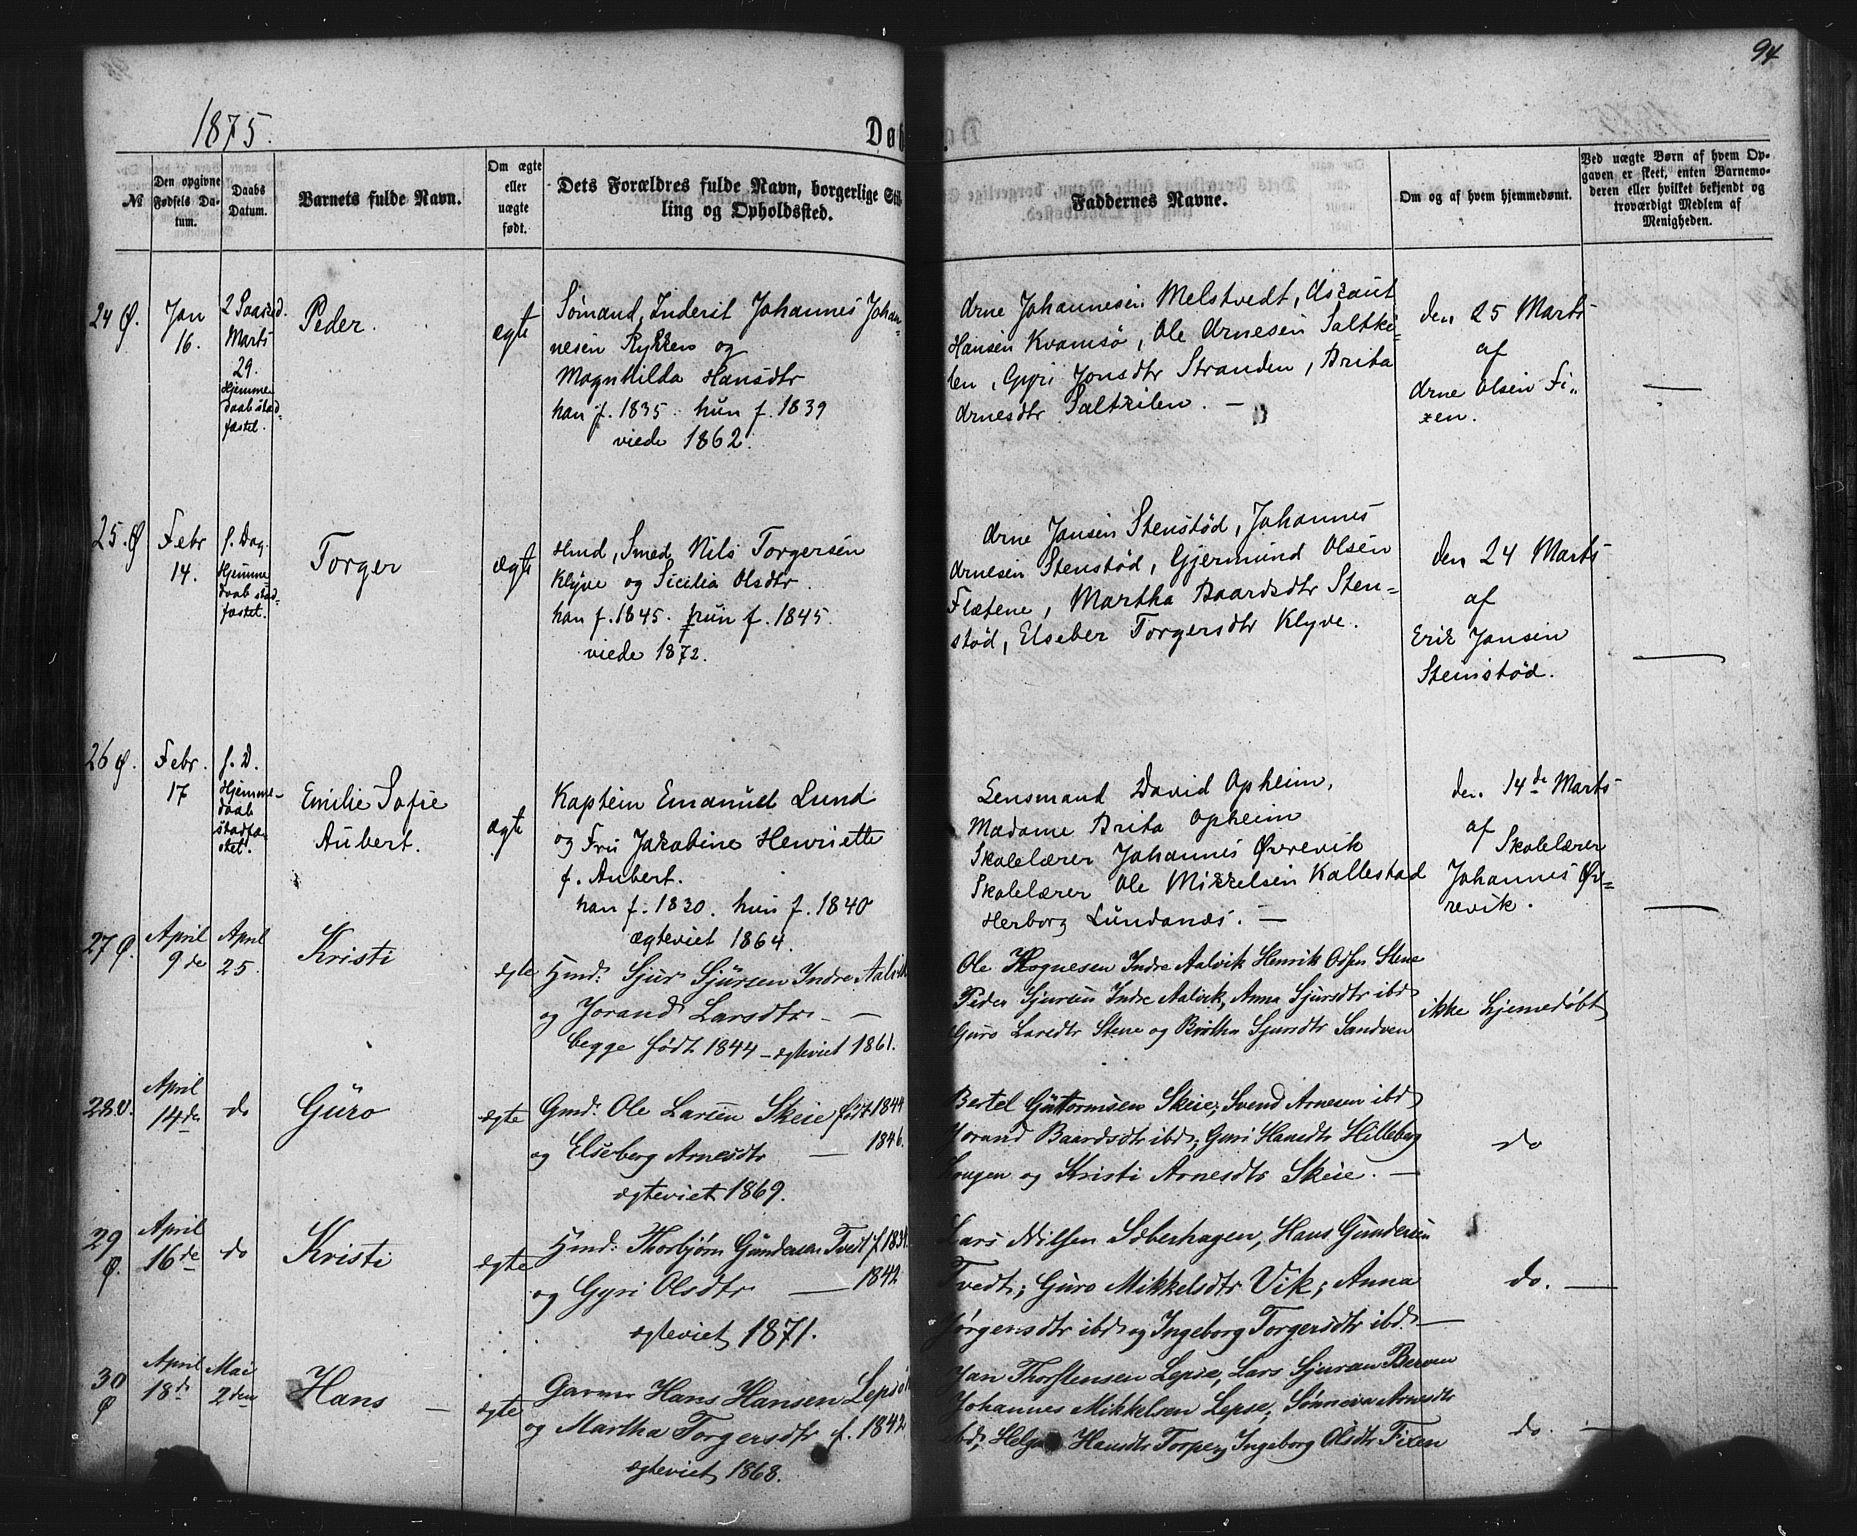 94
1875.
Daab
№
Den opgivne Fødsels Datum.
Daabs Datum.
Barnets fulde Navn.
Om ægte eller uægte født.
Dets Forældres fulde Navn, borgerlige Stilling og Opholdssted.
Faddernes Navne.
Om og af hvem hjemmedøbt.
Ved uægte Børn af hvem Opgaven er skeet, enten Barnemoderen eller hvilket bekjendt og troværdigt Medlem af Menigheden.
24 Ø.
Jan
16.
2 Paasked.
Marts
29.
Hjemme
daab stad=
fæstet.
Peder.
ægte
Sømand, Inderst Johannes Johan=
nesen Rykken og
Magnhilda Hansdtr
han f. 1835. hun f. 1839
viede 1862.
Arne Johannesen Melstvedt, Askaut
Hansen Kvamsø, Ole Arnesen Saltki=
len, Gyri Jonsdtr Stranden, Brita
Arnesdtr Saltkilen. —
den 25 Marts
af
Arne Olsen Fi=
xen.
25. Ø
Febr
14.
s. Dag.
Hjemme
daab stad=
fæstet.
Torger
ægte
Hmd, Smed Nils Torgersen
Klyve og Sicilia Olsdtr.
han f. 1845. hun f. 1845.
viede 1872.
Arne Jansen Stenstød, Johannes
Arnesen Stenstød, Gjermund Olsen
Flætene, Martha Baardsdtr Sten=
stød, Elseber Torgersdtr Klyve.
den 24 Marts
af
Erik Jansen
Steinstød.
26 Ø.
Febr.
17
s. D.
Hjemme-
daab
stadfæ
stet.
Emilie Sofie
Aubert.
ægte
Kaptein Emanuel Lund
og Fru Jakobine Henriette
f. Aubert.
han f. 1830. hun f. 1840
ægteviet 1864.
Lensmand David Opheim,
Madame Brita Opheim
Skolelærer Johannes Øvrevik
Skolelærer Ole Mikkelsen Kallestad
Herborg Lundanæs. —
den 14de Marts
af Skolelærer
Johannes Øv=
revik.
27 Ø.
April
9de
April
25.
Kristi
ægte
Hmd: Sjur Sjursen Indre Aalvik
og Jorand Larsdtr — —
begge født 1844 — ægteviet 1861.
Ole Hognesen Indre Aalvik Henrik Odsen Stene
Peder Sjursen Indre Aalvik, Anna Sjursdtr ibd
Guro Larsdtr Stene og Britha Sjursdtr Sandven
ikke hjemedøbt
28 Ø.
April
14de
do
Guro
ægte
Gmd: Ole Larsen Skeie født 1844
og Elseberg Arnesdtr — 1846.
ægteviet 1869.
Bertel Guttormsen Skeie; Svend Arnesen ibd
Jorand Baardsdtr ibd; Guri Hansdtr Hilleberg
Hougen og Kristi Arnesdtr Skeie. —
do
29
Ø.
April
16de
do
Kristi
ægte
Hmd: Thorbjørn Gundersen Tveit f 1831.
og Gyri Olsdtr — 1842
ægteviet 1871.
Lars Nilsen Soberhagen, Hans Gundersen
Tvedt; Guro Mikkelsdtr Vik; Anna
Jørgensdtr ibd og Ingeborg Torgersdtr ibd. —
do. —
30
Ø
April
18de
Mai
2den
Hans —
ægte
Garver Hans Hansen Lepsø
og Martha Torgersdtr f. 1842
ægteviet 1868.
Jan Thorstensen Lepsø, Lars Sjursen Berven
Johannes Mikkelsen Lepsø; Sønneva Arnesdtr
ibd; Helga Hansdtr Torpe, Ingeborg Olsdtr Fixen
do. —